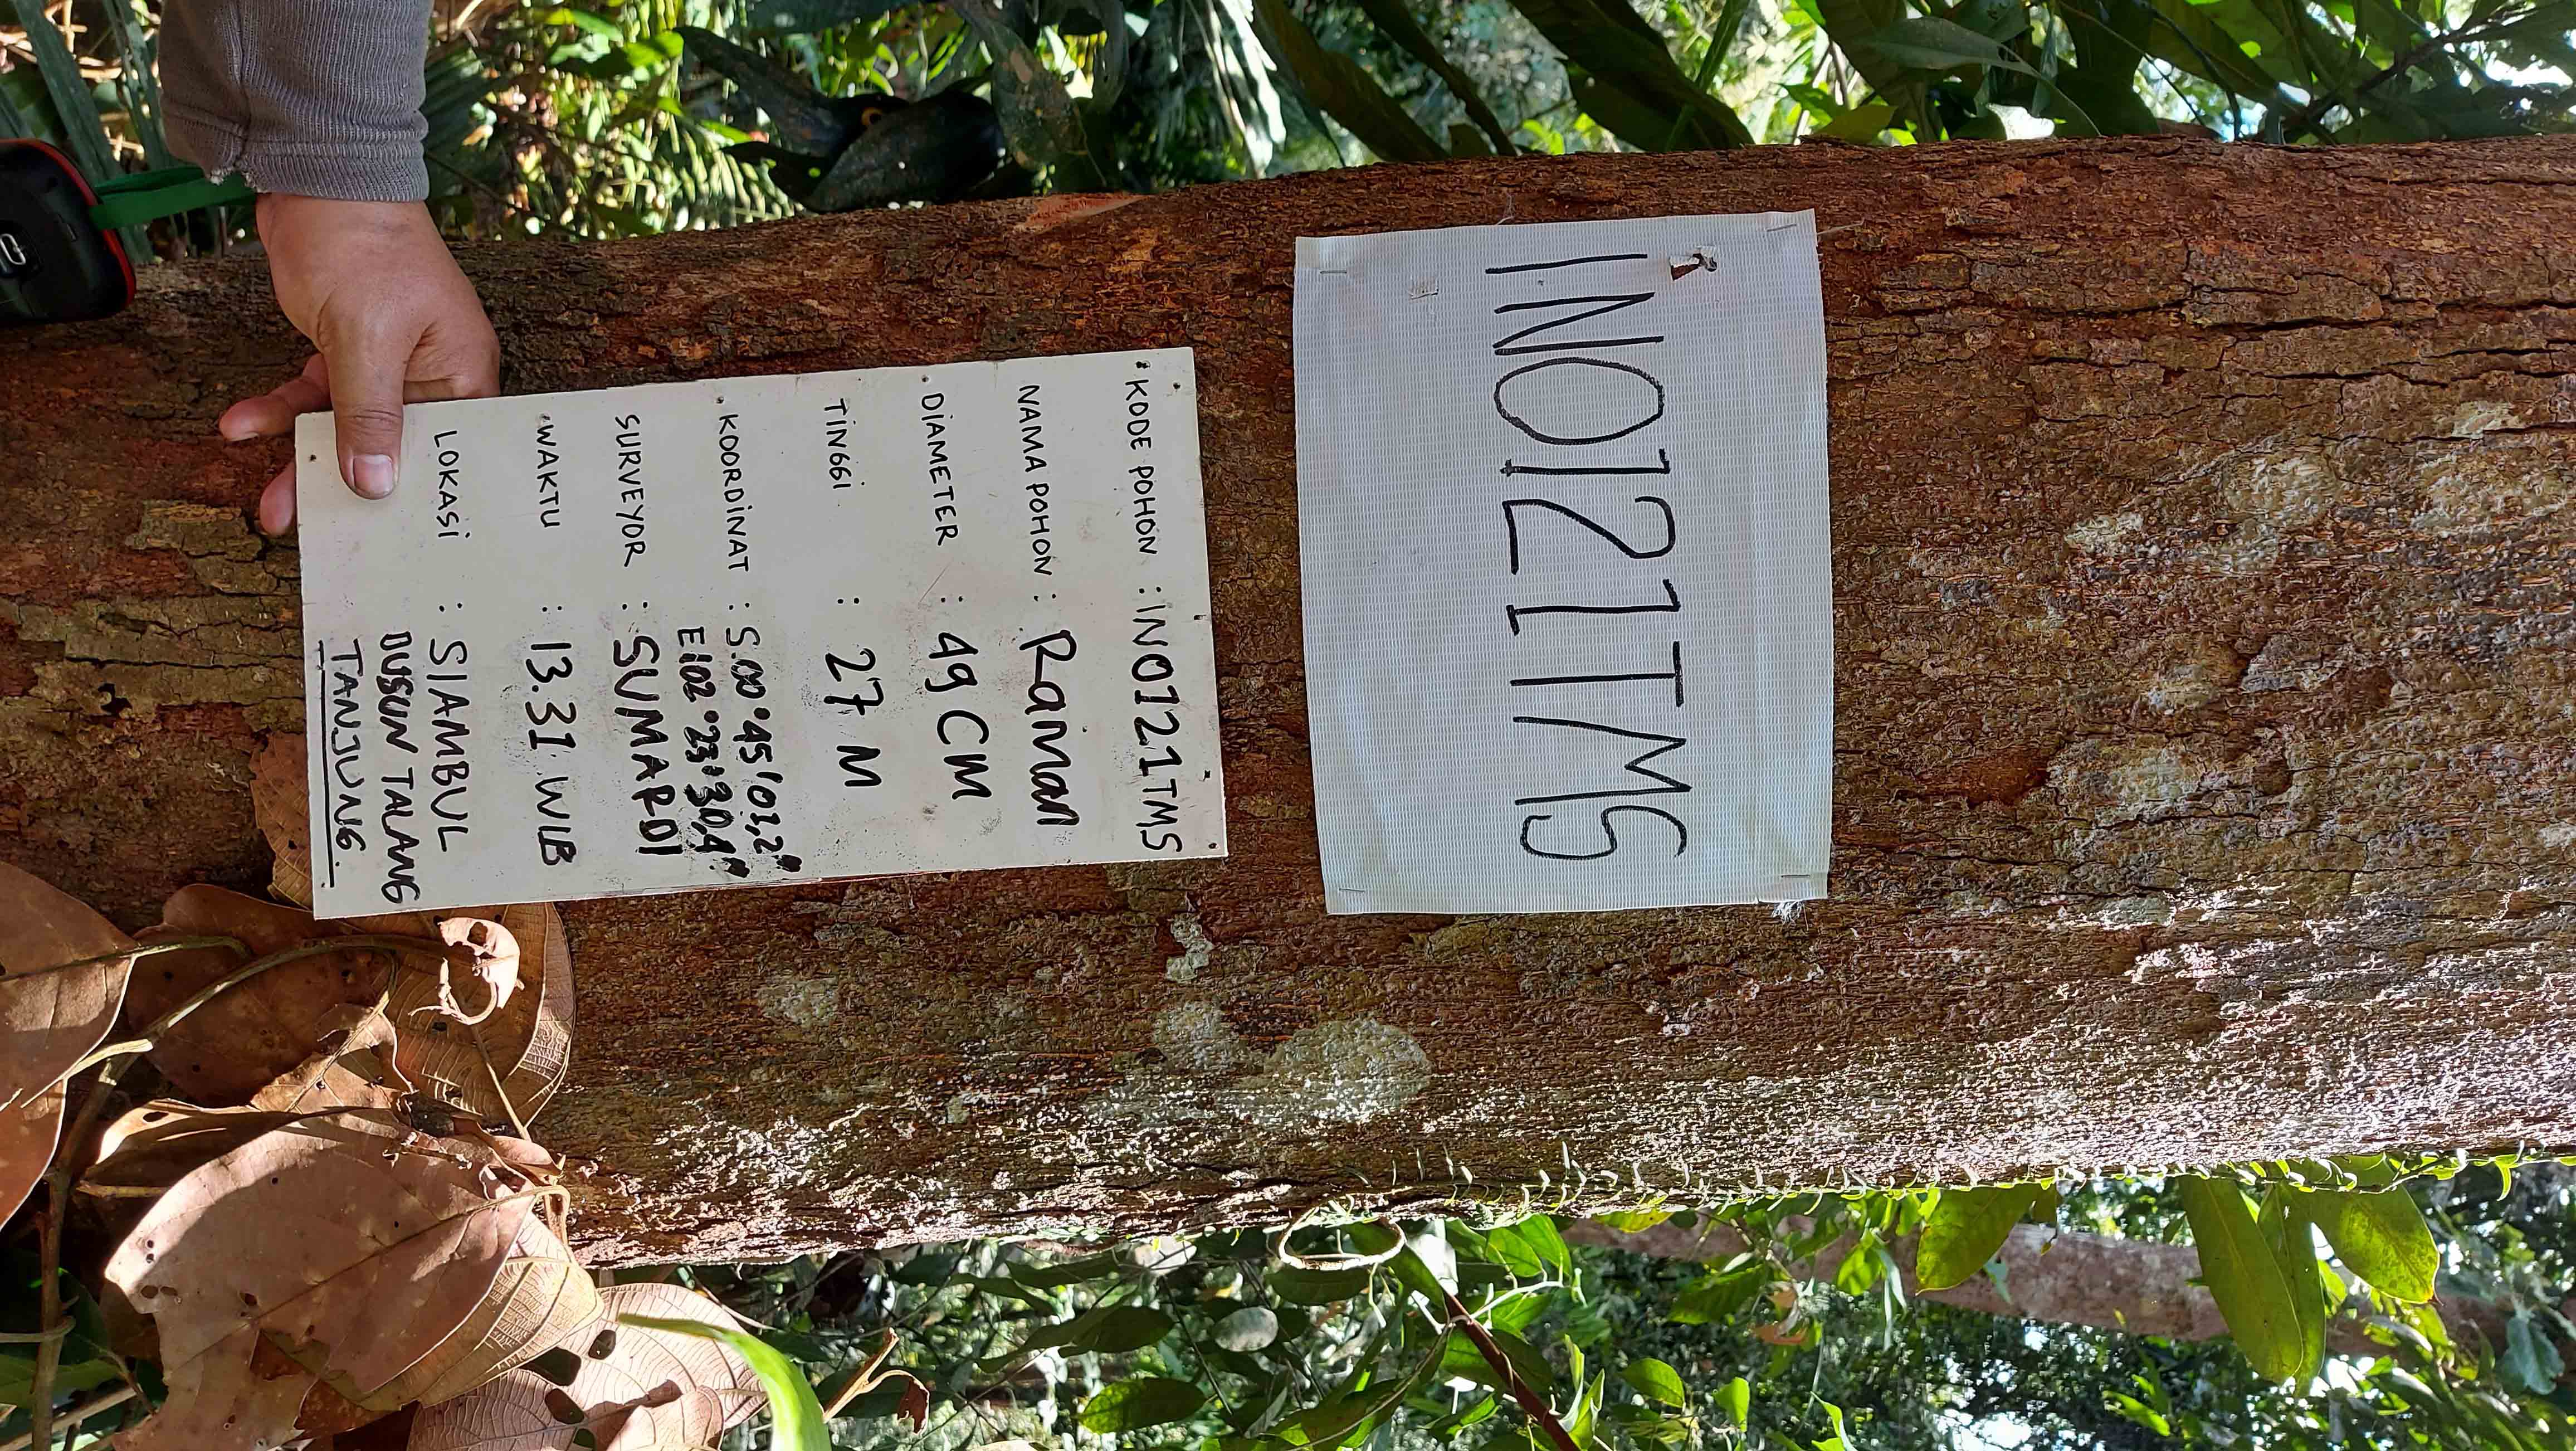 INO121TMS
KODE POHON : INO121TMS
NAMA POHON : Raman
DIAMETER : 49 CM
TINGGI : 27 M
KOORDINAT : S.00°45'03,2"
E102°23'30,4"
SURVEYOR : SUMARDI
WAKTU : 13.31 WIB
LOKASI : SIAMBUL
DUSUN TALANG
TANJUNG.